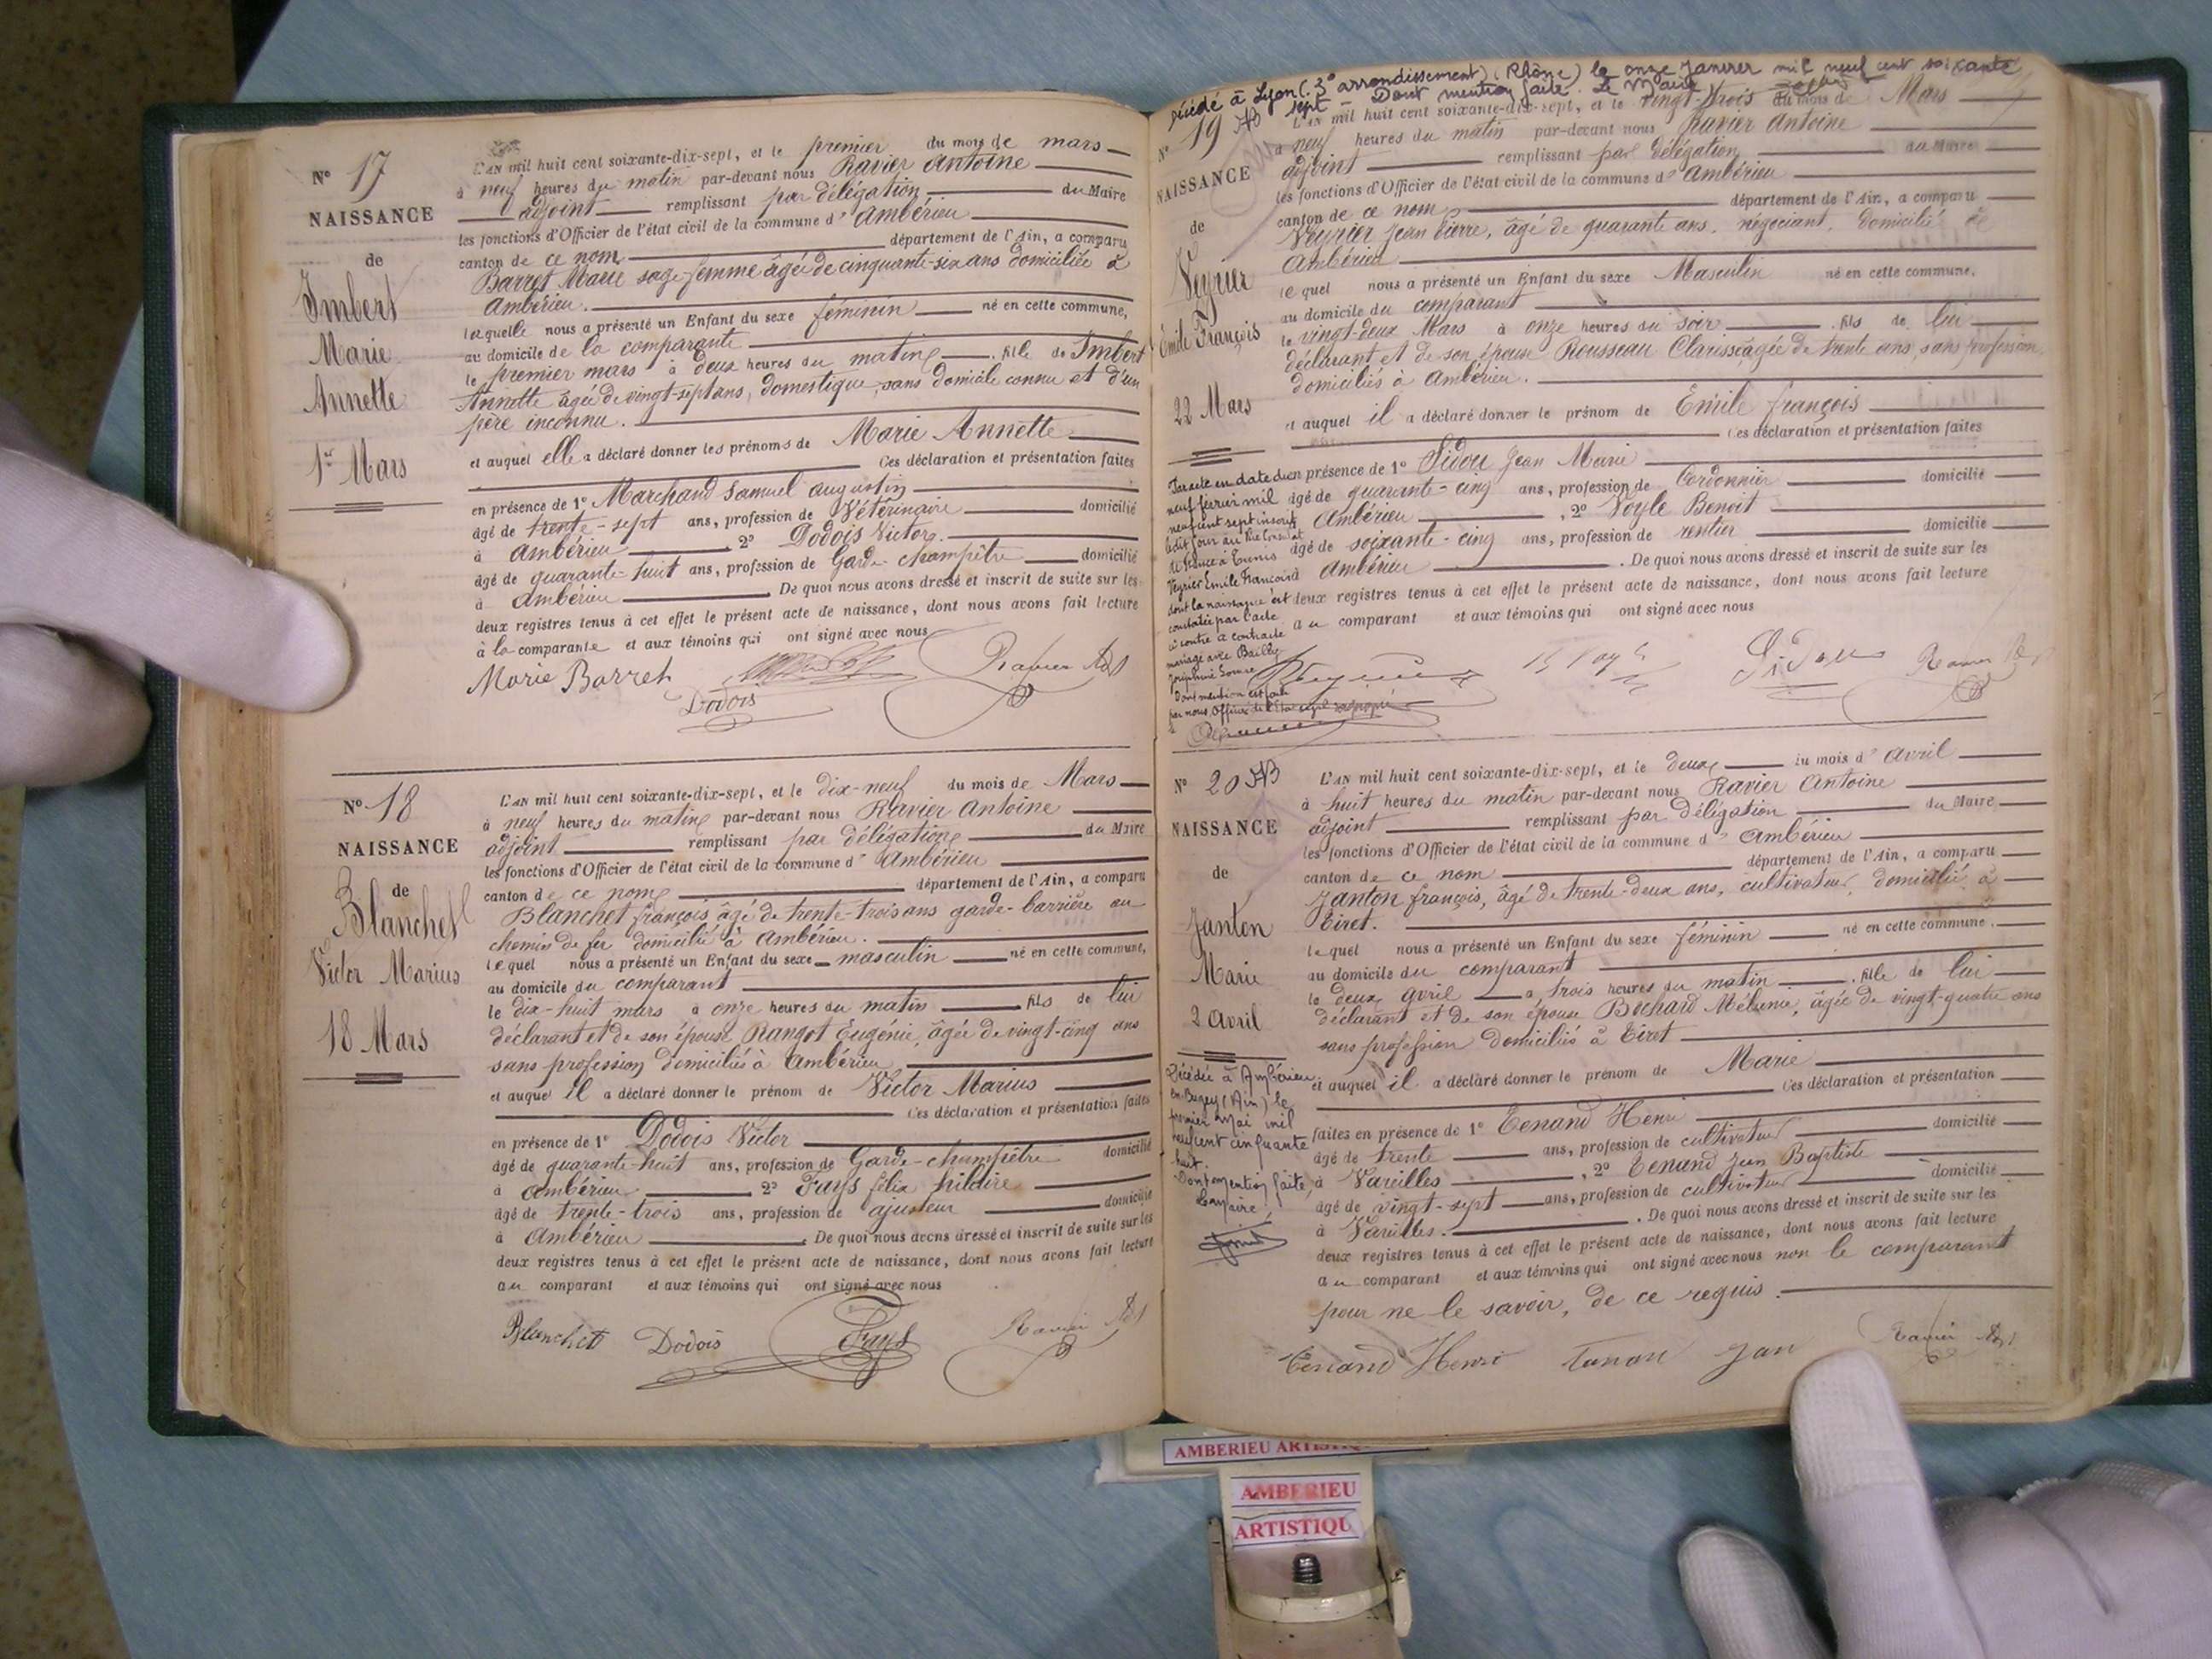 N° 17
NAISSANCE
de
Imbert
Marie
Annette
1er Mars
L'AN mil huit cent soixante-dix-sept, et le premier du mois de mars
à neuf heures du matin par-devant nous Ravier Antoine
adjoint remplissant par délégation du Maire
les fonctions d'Officier de l'état civil de la commune d' Ambérieu
canton de ce nom département de l'Ain, a comparu
Barret Marie sage-femme âgée de cinquante-six ans domiciliée à
Ambérieu.
laquelle nous a présenté un Enfant du sexe féminin né en cette commune,
au domicile de la comparante
le premier mars à deux heures du matin fille de Imbert
Annette âgée de vingt-sept ans, domestique, sans domicile connu et d'un
père inconnu.
et auquel elle a déclaré donner les prénoms de Marie Annette
Ces déclaration et présentation faites
en présence de 1° Marchand Samuel Augustin
âgé de trente-sept ans, profession de Vétérinaire domicilié
à Ambérieu 2° Dodois Victor
âgé de quarante-huit ans, profession de Garde-champêtre domicilié
à Ambérieu De quoi nous avons dressé et inscrit de suite sur les
deux registres tenus à cet effet le présent acte de naissance, dont nous avons fait lecture
à la comparante et aux témoins qui ont signé avec nous
Marie Barret
Dodois
Ravier Adt
N° 18
NAISSANCE
de
Blanchet
Victor Marius
18 Mars
L'AN mil huit cent soixante-dix-sept, et le dix-neuf du mois de Mars
à neuf heures du matin par-devant nous Ravier Antoine
adjoint remplissant par délégation du Maire
les fonctions d'Officier de l'état civil de la commune d' Ambérieu
canton de ce nom département de l'Ain, a comparu
Blanchet françois, âgé de trente-trois ans garde-barrière au
chemin de fer domicilié à Ambérieu.
lequel nous a présenté un Enfant du sexe masculin né en cette commune,
au domicile du comparant
le dix-huit mars à onze heures du matin fils de lui
déclarant et de son épouse Rangot Eugénie, âgée de vingt-cinq ans
sans profession domiciliés à Ambérieu
et auquel il a déclaré donner le prénom de Victor Marius
Ces déclaration et présentation faites
en présence de 1° Dodois Victor
âgé de quarante-huit ans, profession de Garde-champêtre domicilié
à Ambérieu 2° Fays félix hilaire
âgé de trente-trois ans, profession de ajusteur domicilié
à Ambérieu De quoi nous avons dressé et inscrit de suite sur les
deux registres tenus à cet effet le présent acte de naissance, dont nous avons fait lecture
au comparant et aux témoins qui ont signé avec nous
Blanchet Dodois Fays Ravier Adt
Décédé à Lyon (3° arrondissement) (Rhône) le onze Janvier mil neuf cent soixante
sept - Dont mention faite. Le Maire
N° 19
NAISSANCE
de
Veyrier
Émile François
22 Mars
L'AN mil huit cent soixante-dix-sept, et le vingt-trois du mois de Mars
à neuf heures du matin par-devant nous Ravier Antoine
adjoint remplissant par délégation du Maire
les fonctions d'Officier de l'état civil de la commune d' Ambérieu
canton de ce nom département de l'Ain, a comparu
Veyrier Jean Pierre, âgé de quarante ans, négociant, domicilié à
Ambérieu
lequel nous a présenté un Enfant du sexe Masculin né en cette commune,
au domicile du comparant
le vingt-deux Mars à onze heures du soir fils de lui
déclarant et de son épouse Rousseau Clarisse âgée de trente ans, sans profession
domiciliés à Ambérieu.
et auquel il a déclaré donner le prénom de Emile françois
Ces déclaration et présentation faites
en présence de 1° Sidou Jean Marie
âgé de quarante-cinq ans, profession de Cordonnier domicilié
Ambérieu, 2° Voyle Benoit
âgé de soixante-cinq ans, profession de rentier domicilié
à Ambérieu. De quoi nous avons dressé et inscrit de suite sur les
deux registres tenus à cet effet le présent acte de naissance, dont nous avons fait lecture
au comparant et aux témoins qui ont signé avec nous
Par acte en date du
neuf février mil
neuf cent sept inscrit
ledit jour au Vice Consulat
de France à Tunis
Veyrier Emile François
dont la naissance est
constatée par l'acte
ci contre a contracté
mariage avec Bailly
Joséphine
Dont mention est faite
par nous Officier de l'Etat civil
Sidou
Ravier
N° 20
NAISSANCE
de
Janton
Marie
2 Avril
L'AN mil huit cent soixante-dix-sept, et le deux du mois d' Avril
à huit heures du matin par-devant nous Ravier Antoine
adjoint remplissant par délégation du Maire
les fonctions d'Officier de l'état civil de la commune d' Ambérieu
canton de ce nom département de l'Ain, a comparu
Janton françois, âgé de trente-deux ans, cultivateur, domicilié à
Tiret.
lequel nous a présenté un Enfant du sexe féminin né en cette commune,
au domicile du comparant
le deux Avril à trois heures du matin fille de lui
déclarant et de son épouse Bochard Mélanie, âgée de vingt-quatre ans
sans profession domiciliés à Tiret
et auquel il a déclaré donner le prénom de Marie
Ces déclaration et présentation
faites en présence de 1° Tenand Henri
âgé de trente ans, profession de cultivateur domicilié
à Vareilles, 2° Tenand Jean Baptiste
âgé de vingt-sept ans, profession de cultivateur domicilié
à Vareilles. De quoi nous avons dressé et inscrit de suite sur les
deux registres tenus à cet effet le présent acte de naissance, dont nous avons fait lecture
au comparant et aux témoins qui ont signé avec nous non le comparant
pour ne le savoir, de ce requis.
Décédée à Ambérieu
en-Bugey (Ain) le
premier Mai mil
neuf cent cinquante
huit.
Dont mention faite,
Le Maire,
Tenand Henri Tenan Jan Ravier Adt
AMBERIEU ARTISTIQ
AMBERIEU
ARTISTIQU